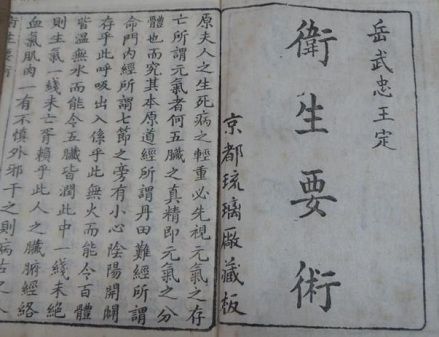 岳武忠王定
衛生要術
京都琉璃廠藏板
原夫人之生死病之輕重必先視元氣之存
亡所謂元氣者何五臟之真精即元氣之分
體也而究其本原道經所謂丹田難經所謂
命門內經所謂七節之旁有小心陰陽開闔
存乎此呼吸出入係乎此無火而能令百體
皆溫無水而能令五臟皆潤此中一綫未絕
則生氣一綫未亡胥賴乎此人之臟腑經絡
血氣肌肉一有不慎外邪干之則病古之人